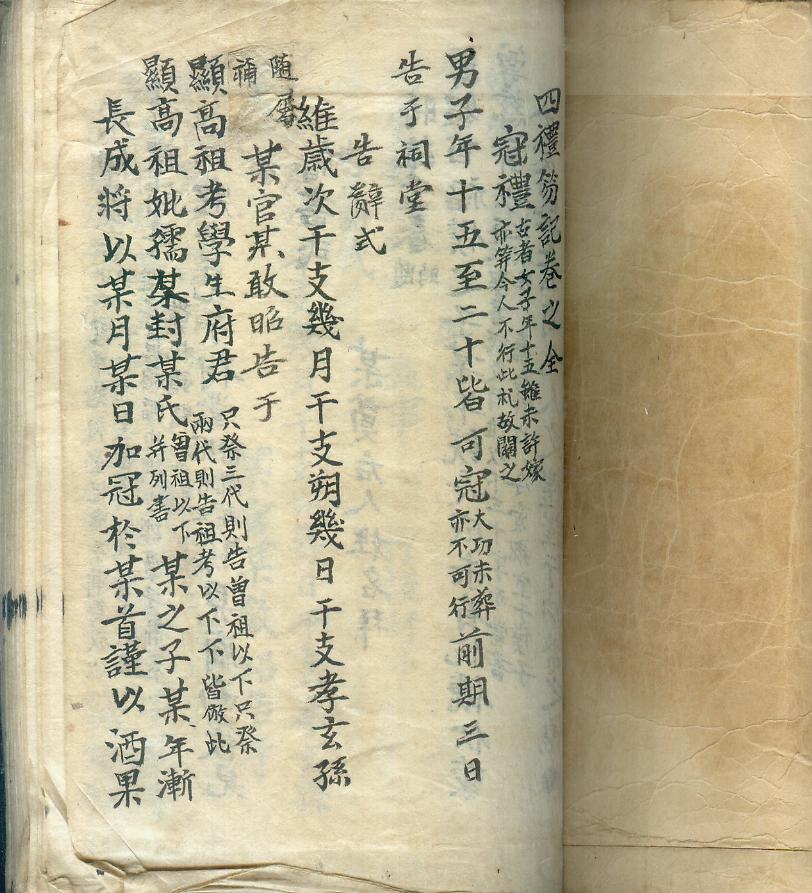 四禮笏記卷之全
冠禮 古者女子年十五雖未許嫁
亦筓今人不行此礼故闕之
男子年十五至二十皆可冠 大功未葬
亦不可行 前期三日
告于祠堂
告辭式
維歲次干支幾月干支朔幾日干支孝玄孫
隨屬
補
某官某敢昭告于
顯高祖考學生府君 只祭三代則告曾祖以下只祭
兩代則告祖考以下下皆倣此
顯高祖妣孺某封某氏 曾祖以下
并列書 某之子某年漸
長成將以某月某日加冠於某首謹以酒果